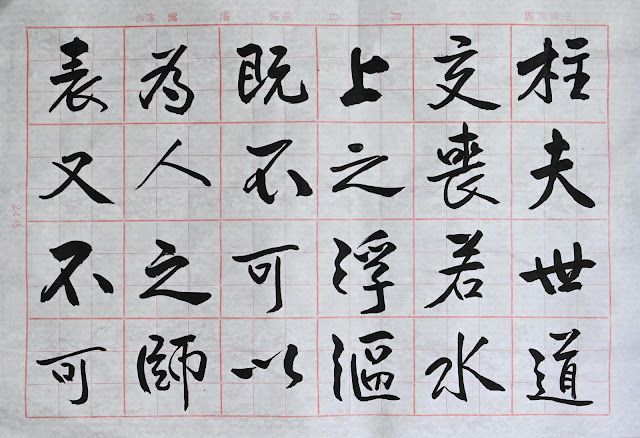 柱夫世道
交喪若水
上之浮漚
既不可以
為人之師
表又不可